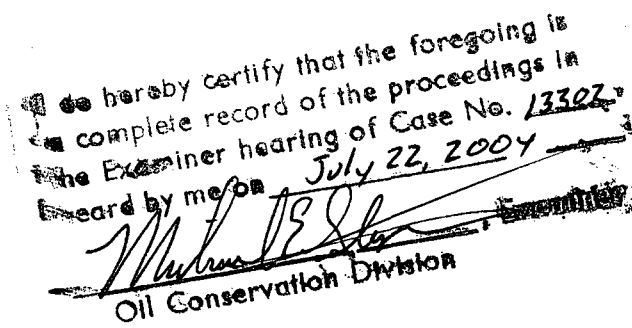 I do hereby certify that the foregoing is
a complete record of the proceedings in
the Examiner hearing of Case No. 13302
heard by me on July 22, 2004
, Examiner
Oil Conservation Division